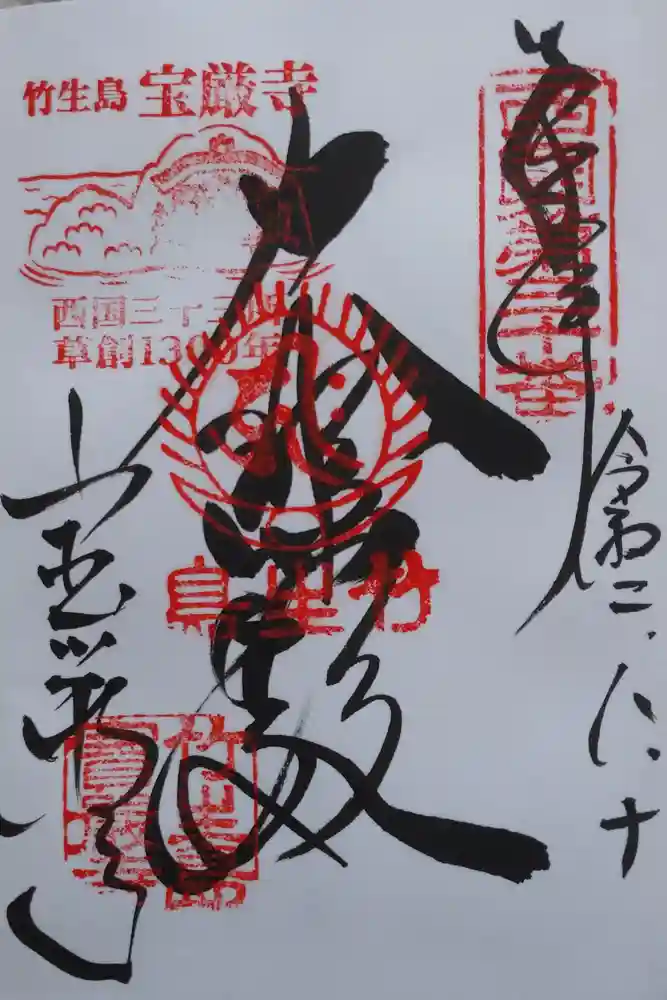 竹生島 宝厳寺
西国三十三所
草創1300年
奉拝
西国第三十番
令和二、八、十
大悲殿
竹生島
宝厳寺
竹生島